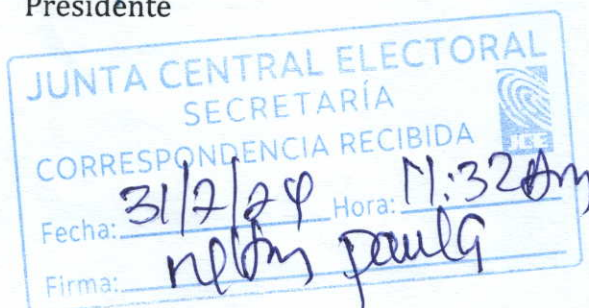 Presidente
JUNTA CENTRAL ELECTORAL
SECRETARÍA
JCE
CORRESPONDENCIA RECIBIDA
Fecha: 31/7/24 Hora: 11:32 Am
Firma: paula